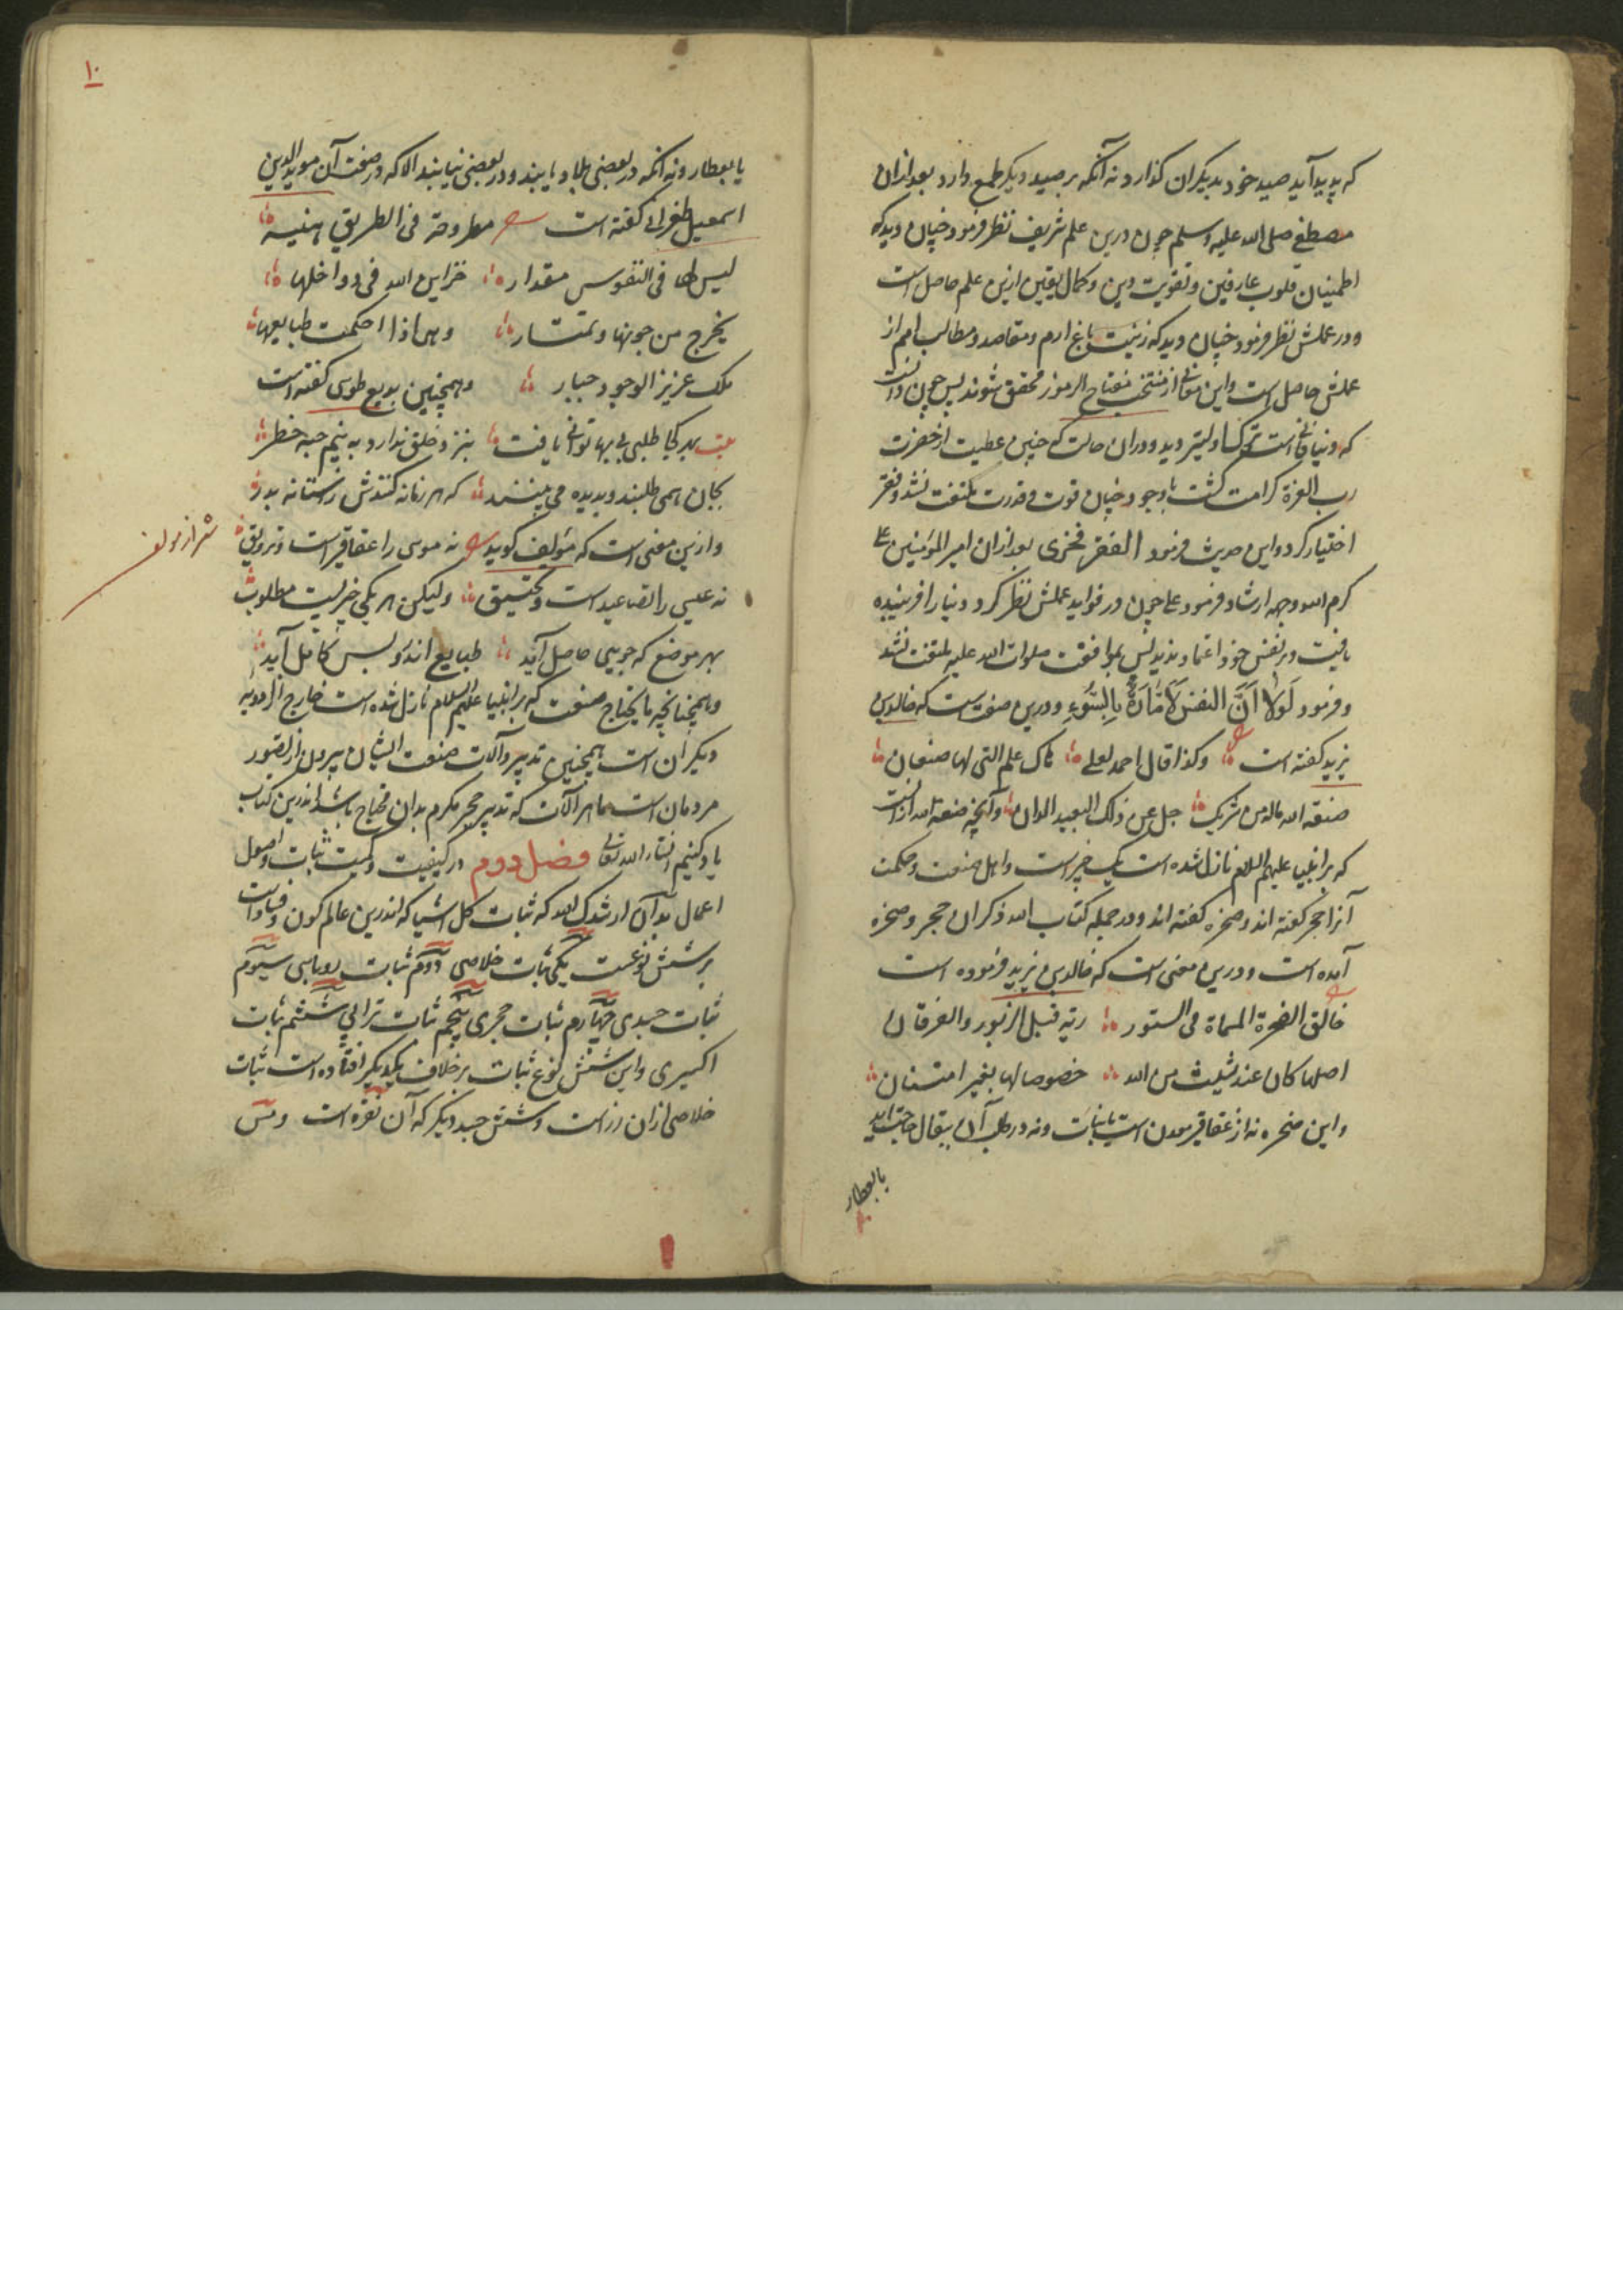 که پدید آید صید خود بدیگران گذارد نه آنکه بر صید دیگر طمع دارد بعد ازان
مصطفی صلی الله علیه وسلم چون درین علم شریف نظر فرمود چنان دید که
اطمینان قلوب عارفین و تقویت دین و کمال یقین ازین علم حاصل است
و در عملش نظر فرمود چنان دید که زینت باغ ارم و مقاصد و مطالب امم از
عملش حاصل است و این معانی از منتخب مفتاح الرموز محقق شوند پس چون دانست
که دنیا فانی است ترک او لیتر دید و دران حالت که چنین عطیت از حضرت
رب العزة کرامت گشت با وجود چنان قوت و قدرت ملتفت نشد و فقر
اختیار کرد و این حدیث فرمود الفقر فخری بعد ازان امیر المؤمنین علی
کرم الله وجهه ارشاد فرمود علی چون در فواید عملش نظر کرد دنیا را فریبنده
یافت و بر نفس خود اعتماد ندید پس بموافقت صلوات الله علیه ملتفت نشد
و فرمود لَولا اَنَّ النفسَ لَاَمّارَةٌ بِالسُّوءِ و درین صنعت است که خالد بن
یزید گفته است وکذا قال احمد لعلی ذاک علم التی لها صنعان
صنعة الله ماله من شریک جل عن ذلک البعید المدان و آنچه صنعة الله است
که بر انبیا علیهم السلام نازل شده است یک چیز است و اهل صنعت و حکمت
آنرا حجر گفته اند و صخره گفته اند و در جمله کتاب الله ذکران حجر و صخره
آمده است و درین معنی است که خالد بن یزید فرموده است
خالق الصخرة المسماة فی الستور ربه قبل الزبور والفرقان
اصلها کان عند شیث من الله خصوصا لها بغیر امتنان
و این صخره نه از عقاقیر معدن است یا نبات و نه در طلب آن ببقال حاجت آید
یا بعطار
۱۰
یا بعطار و نه آنکه در بعضی بلاد یابند و در بعضی نیابند الا که در صفت آن موید الدین
اسمعیل طغرائی گفته است مطروحة فی الطریق هنیه
لیس لها فی النفوس مقدار خزاین الله فی دواخلها
یخرج من جوبها و تمتار وهی اذا احکمت طبایعها
ملک عزیز الوجود جبار و همچنین بدیع طوسی گفته است
بیت بهر کجا طلبی بی بها توانی یافت بنزد خلق ندارد به نیم حبه خطر
بجان همی طلبند و بدیده می بینند که هر زمانه کنندش ز آستانه بدر
و ازین معنی است که مؤلف گوید نه موسی را عقاقیر است و ترویق
شعر از مولف
نه عیسی را تصاعید است و تحقیق ولیکن هر یکی چیزیست مطلوب
بهر موضع که جویی حاصل آید طبایع اندکو بس کامل آید
و همچنانچه مایحتاج صنعت که بر انبیا علیهم السلام نازل شده است خارج از ادویه
دیگران است همچنین تدبیر و آلات صنعت ایشان بیرون از تصور
مردمان است اما هر آلات که تدبیر حجر مکرم بدان محتاج باشد اندرین کتاب
یاد کنیم انشاء الله تعالی فصل دوم در کیفیت و کمیت ثبات و اصول
اعمال بدآن ارشدک الله که ثبات کل اشیا که اندرین عالم کون و فساد است
بر شش نوعست یکی ثبات خلاصی دوم ثبات روباسی سیوم
ثبات جسدی چهارم ثبات حجری پنجم ثبات ترابی ششم ثبات
اکسیری و این شش نوع ثبات بر خلاف یکدیگر افتاده است ثبات
خلاصی ازان زر است و شش جسد دیگر که آن نقره است و مس